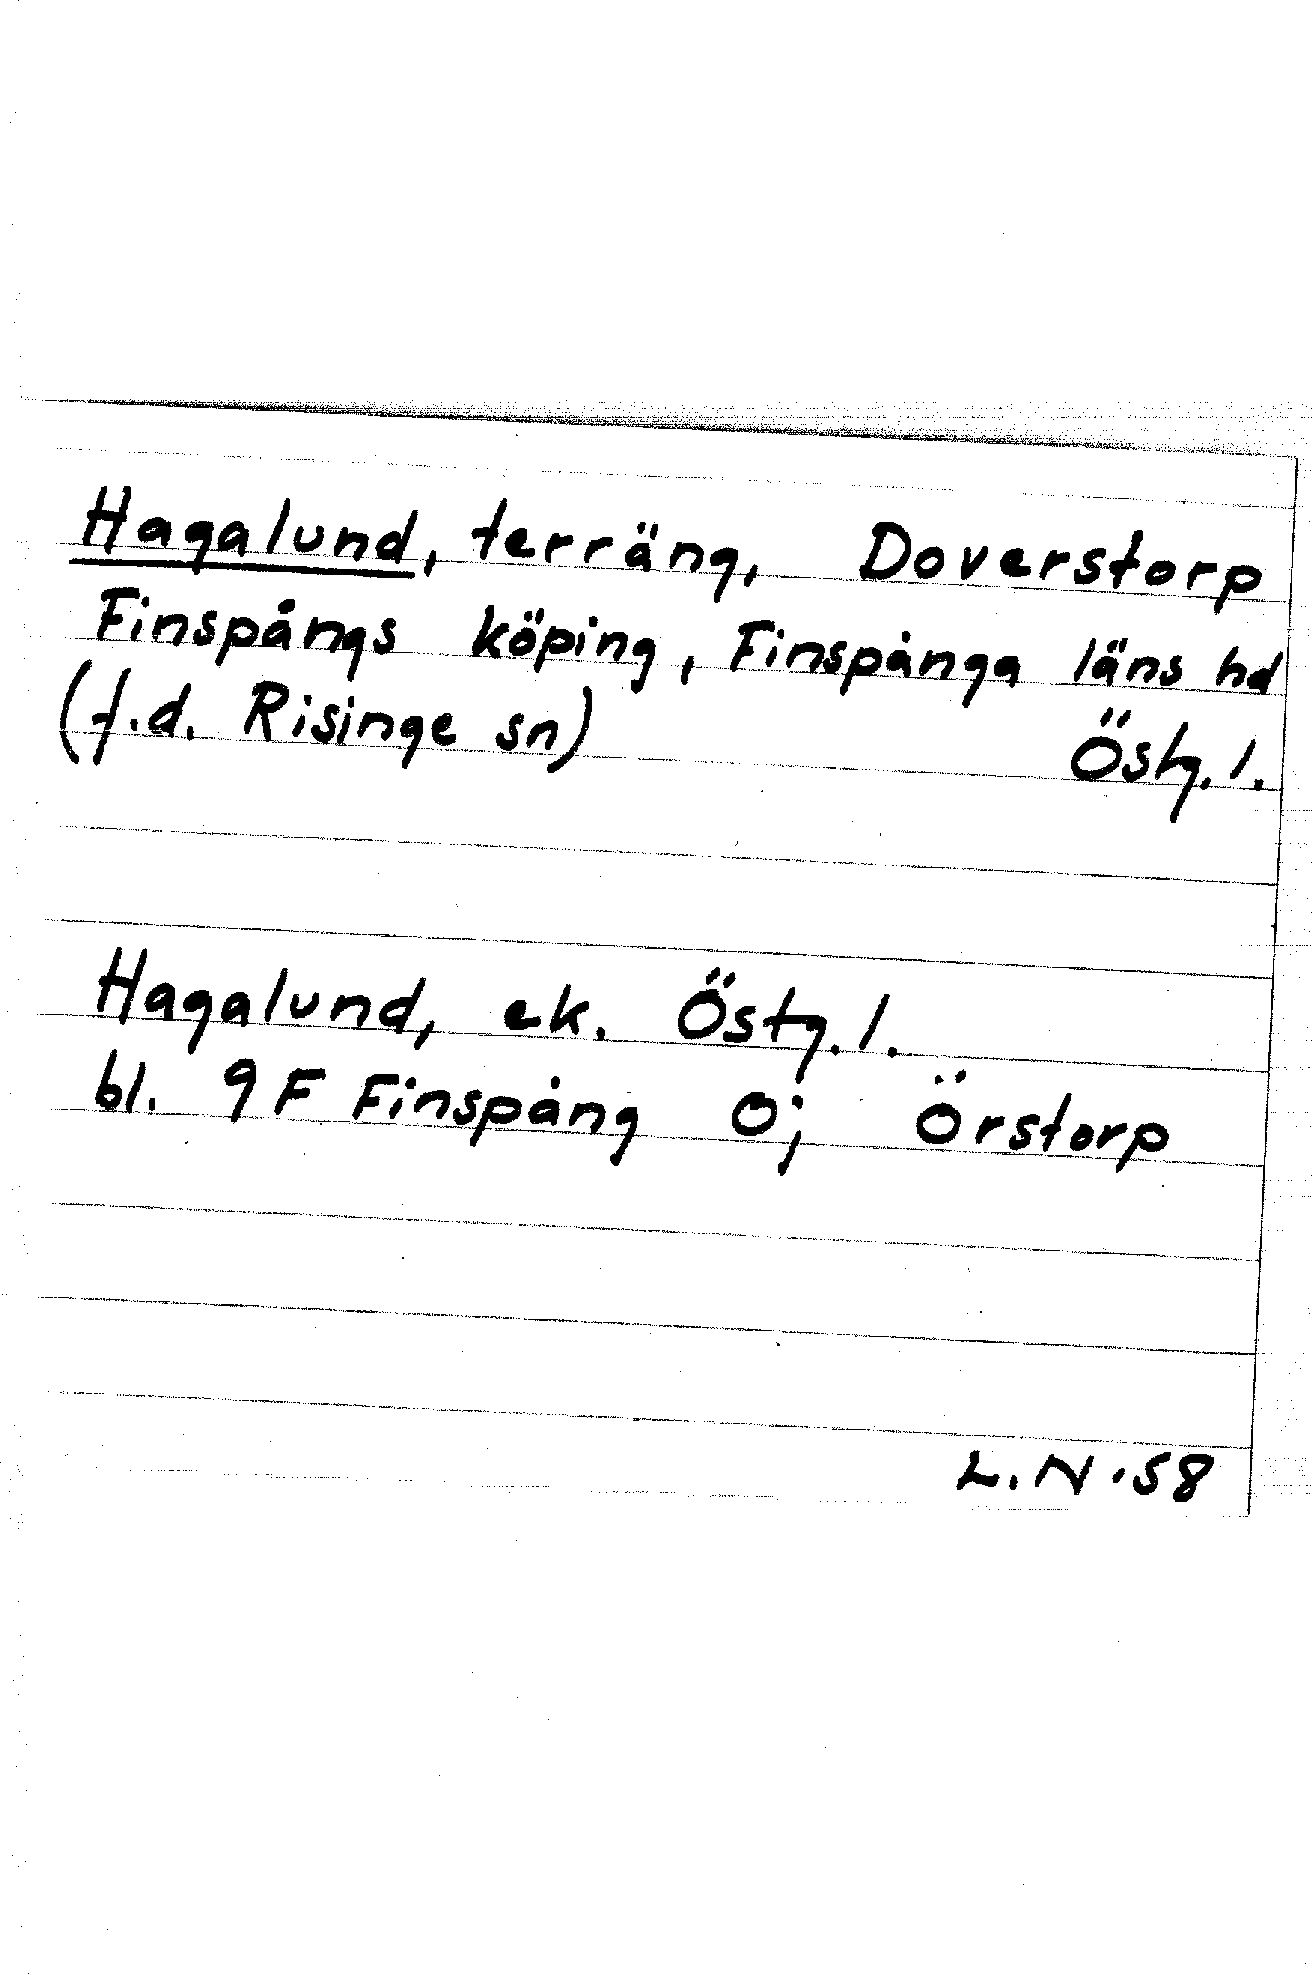 Hagalund, terräng, Doverstorp
Finspångs köping, Finspånga läns hd
(f.d. Risinge sn) Östg. l.
Hagalund, ek. Östg. l.
bl. 9F Finspång O; Örstorp
L. N. 58